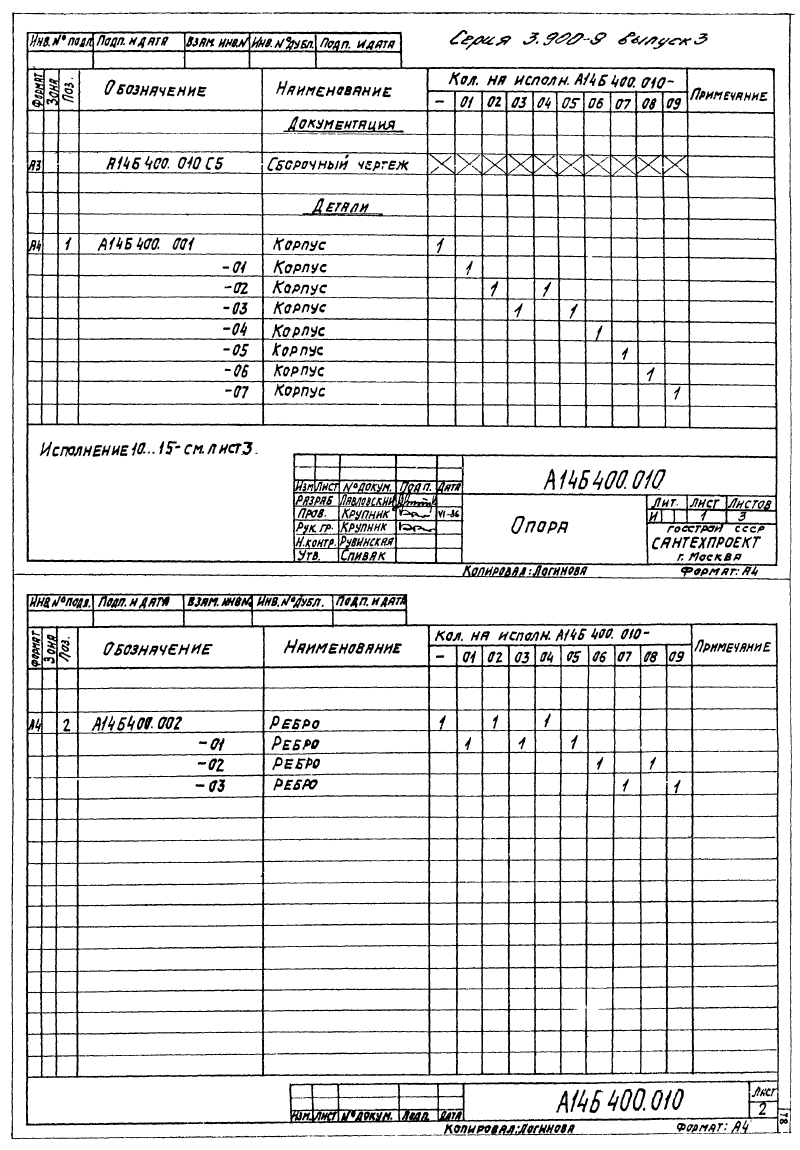 Серия 3.900-9 выпуск 3
Инв.№подл. Подп. и дата Взам. инв.№ Инв.№дубл. Подп. и дата
Формат Зона Поз. Обозначение Наименование Кол. на исполн. А14Б 400.010- Примечание
- 01 02 03 04 05 06 07 08 09
Документация
А3 А14Б 400.010 СБ Сборочный чертеж
Детали
А4 1 А14Б 400. 001 Корпус 1
-01 Корпус 1
-02 Корпус 1 1
-03 Корпус 1 1
-04 Корпус 1
-05 Корпус 1
-06 Корпус 1
-07 Корпус 1
Исполнение 10...15- см. лист 3.
А14Б400.010
Изм Лист №докум. Подп. Дата
Разраб Павловский
Пров. Крупник VI-86
Рук. гр. Крупник
Н.контр. Рувинская
Утв. Спивак
Опора
Лит. Лист Листов
И 1 3
Госстрой СССР
САНТЕХПРОЕКТ
г. Москва
Копировал: Логинова Формат: А4
Инв.№подл. Подп. и дата Взам. инв.№ Инв.№дубл. Подп. и дата
Формат Зона Поз. Обозначение Наименование Кол. на исполн. А14Б 400.010- Примечание
- 01 02 03 04 05 06 07 08 09
А4 2 А14Б400.002 Ребро 1 1 1
-01 Ребро 1 1 1
-02 Ребро 1 1
-03 Ребро 1 1
Изм. Лист №докум. Подп. Дата
А14Б 400.010
Лист
2
Копировал: Логинова Формат: А4